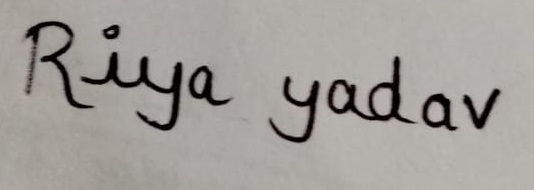 Riya yadav